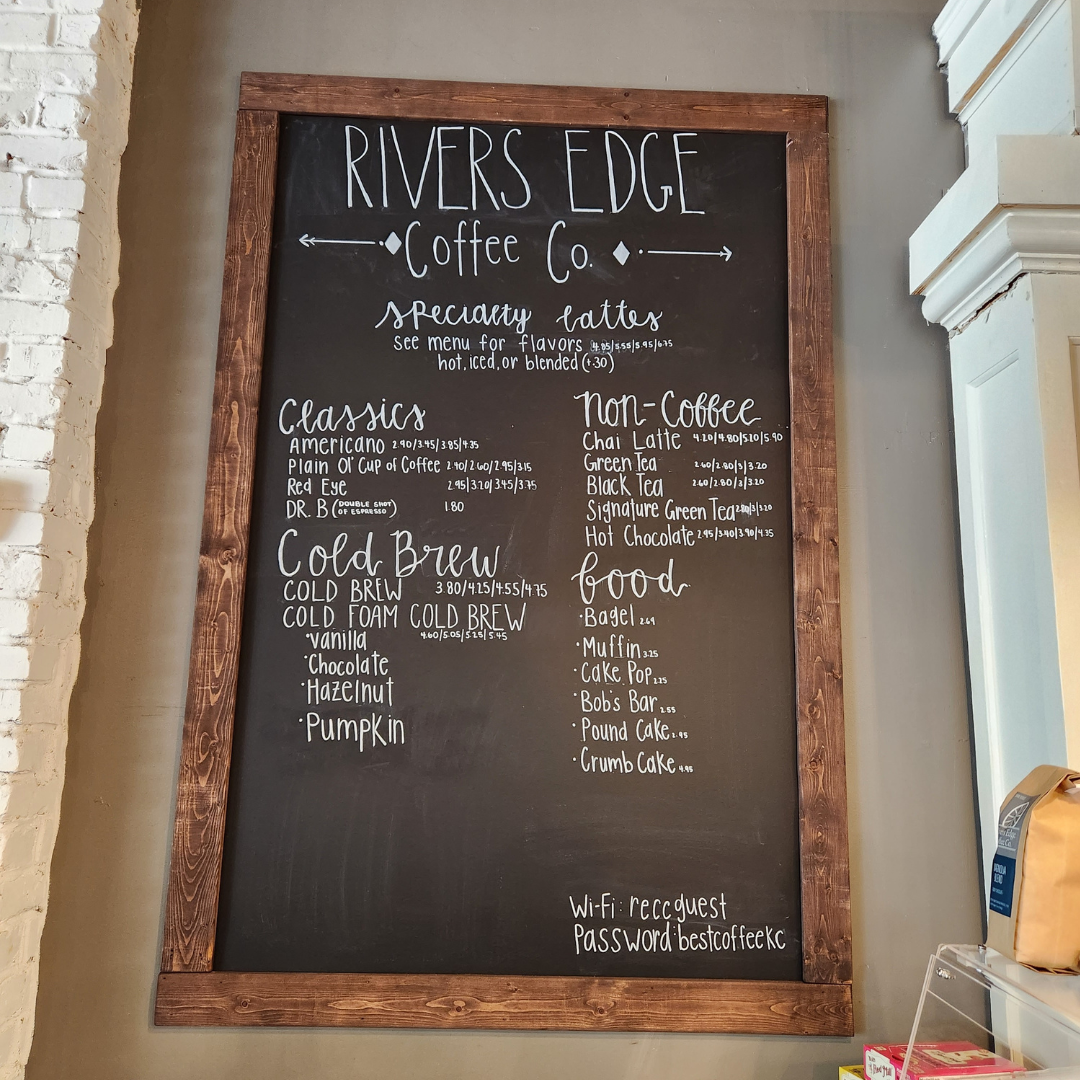 RIVERS EDGE
Coffee Co.
Specialty Lattes
see menu for flavors 4.85/5.55/5.95/6.75
hot, iced, or blended (+.30)
Classics
Americano 2.90/3.45/3.85/4.35
Plain Ol' Cup of Coffee 2.40/2.60/2.95/3.15
Red Eye 2.95/3.20/3.45/3.75
DR. B (DOUBLE SHOT OF ESPRESSO) 1.80
Cold Brew
COLD BREW 3.80/4.25/4.55/4.75
COLD FOAM COLD BREW
4.60/5.05/5.25/5.45
·Vanilla
·Chocolate
·Hazelnut
·Pumpkin
Non-Coffee
Chai Latte 4.20/4.80/5.20/5.90
Green Tea 2.60/2.80/3/3.20
Black Tea 2.60/2.80/3/3.20
Signature Green Tea
Hot Chocolate 2.95/3.40/3.90/4.35
Food
·Bagel 2.69
·Muffin 3.25
·Cake Pop 2.25
·Bob's Bar 2.55
·Pound Cake 2.95
·Crumb Cake 4.95
Wi-Fi: reccguest
Password: bestcoffeekc